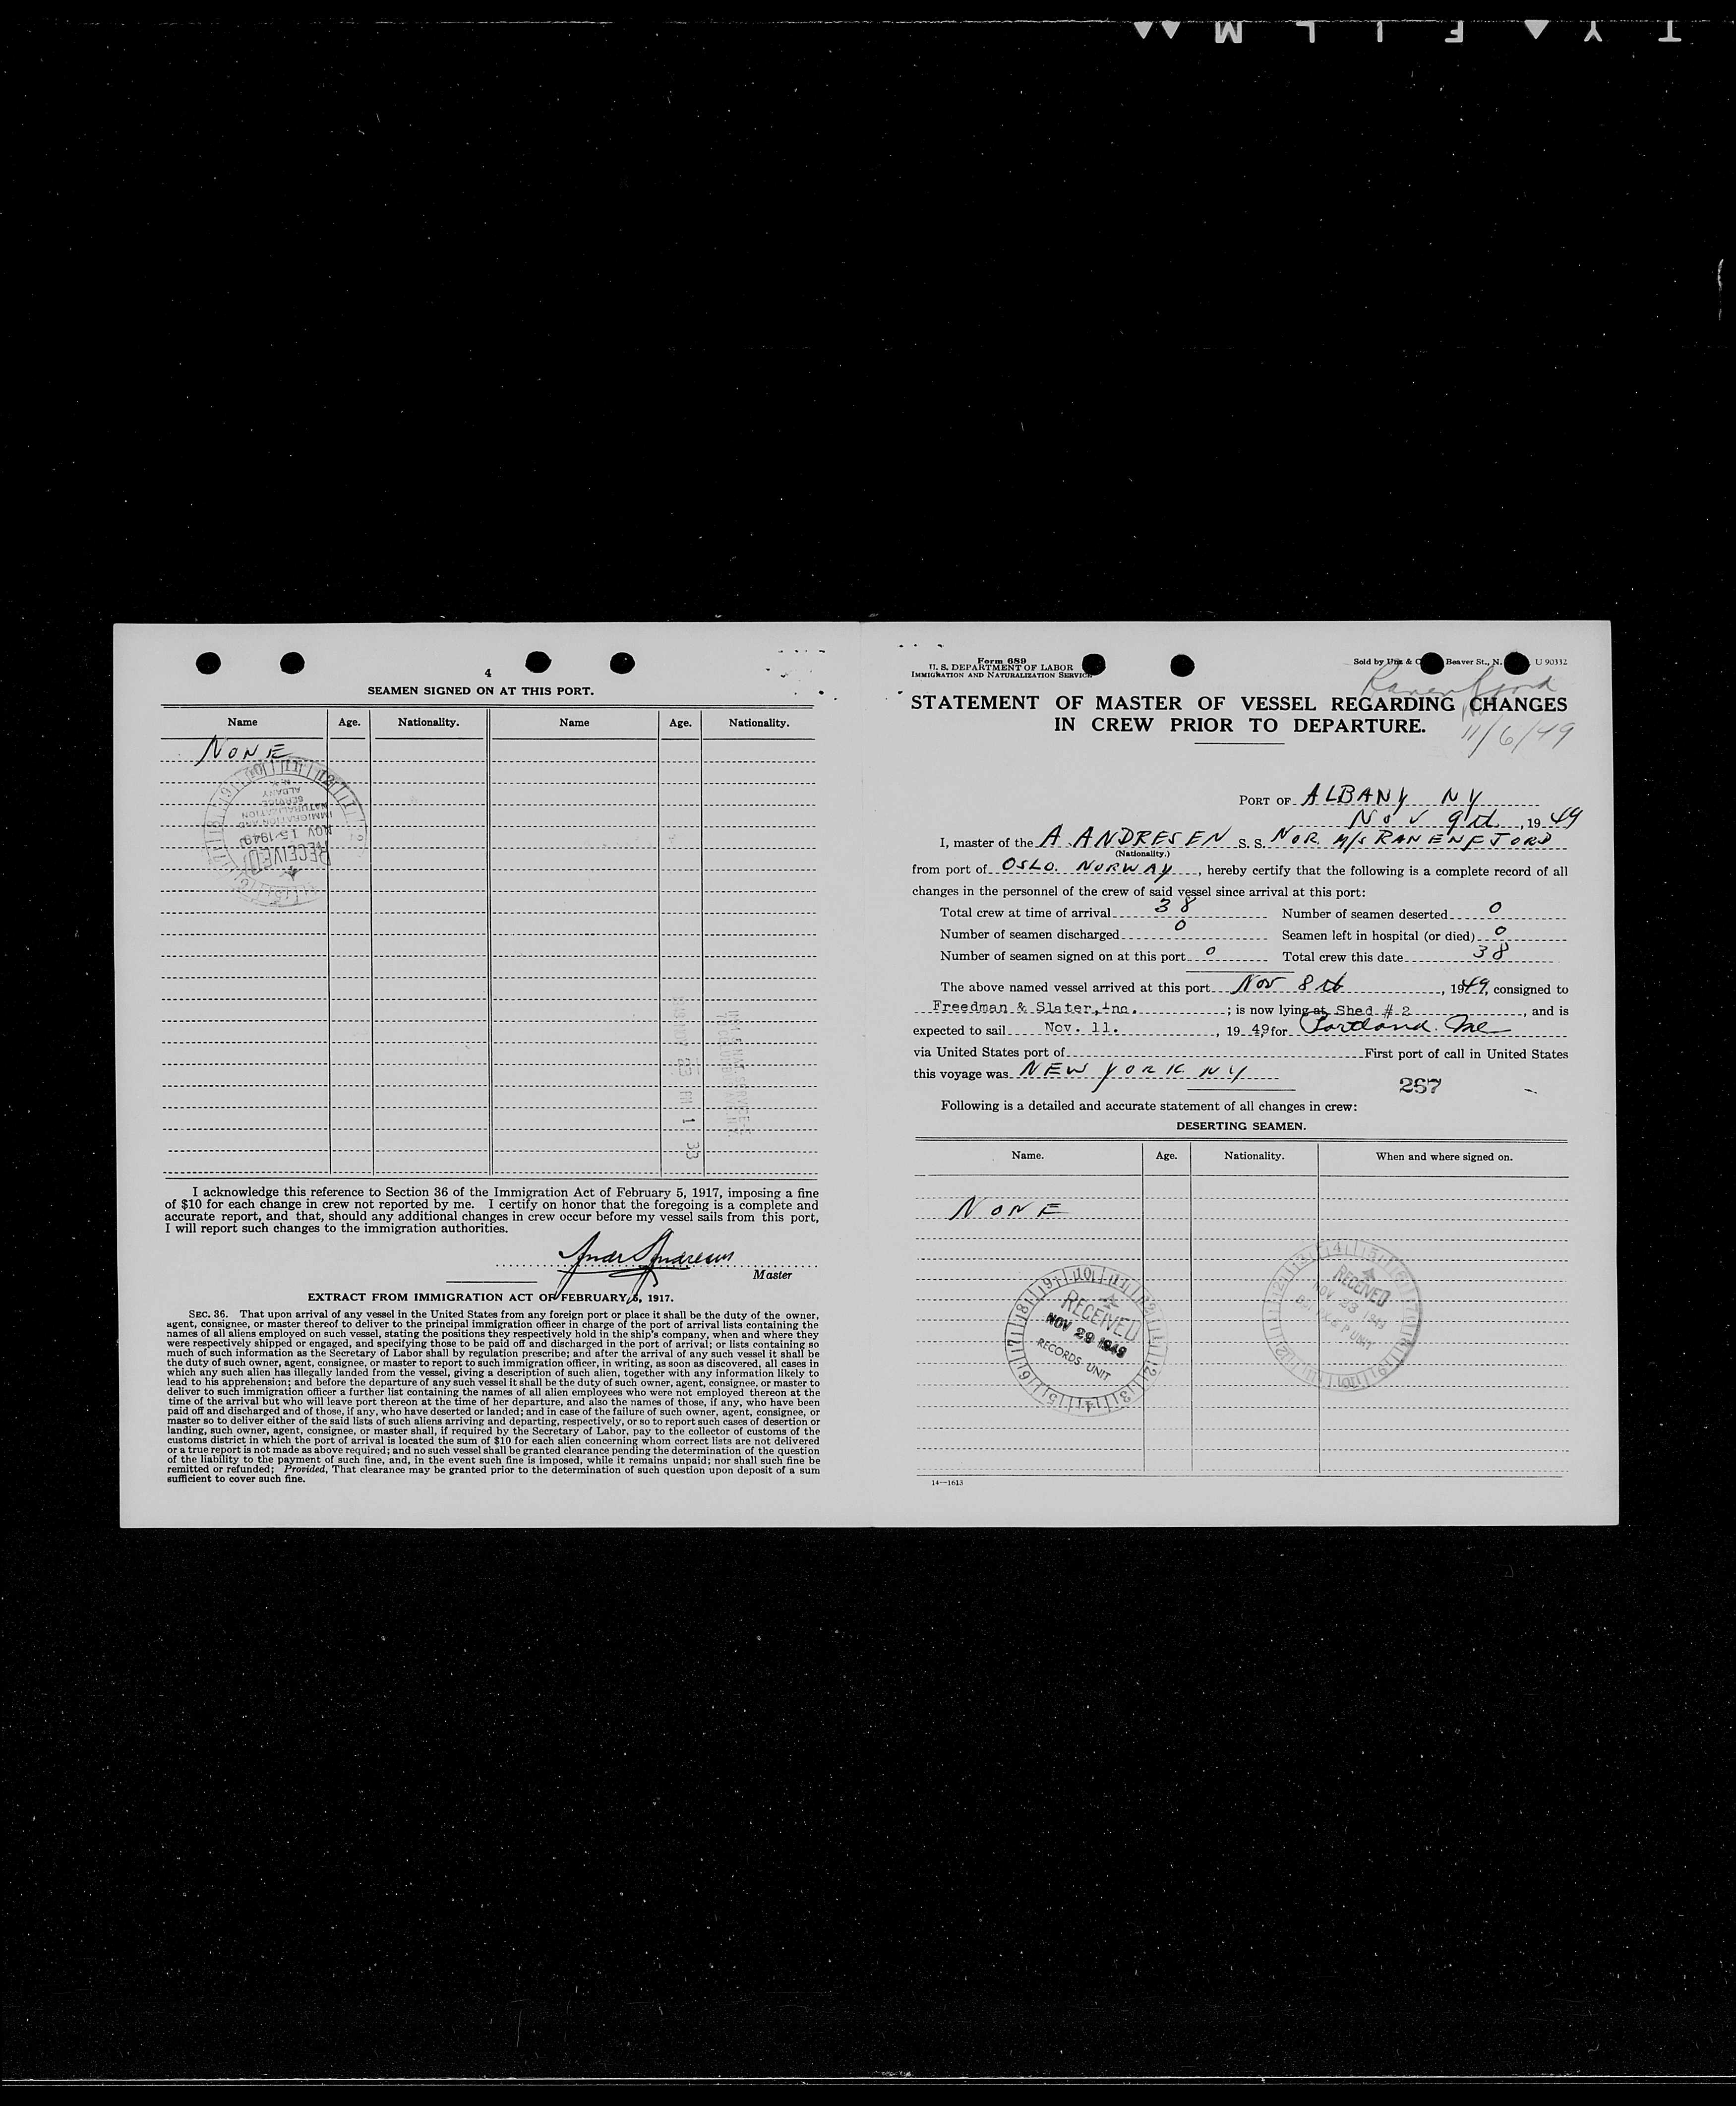 4
SEAMEN SIGNED ON AT THIS PORT.
Name Age. Nationality. Name Age. Nationality.
NONE
RECEIVED
NOV 15 1949
IMMIGRATION AND
NATURALIZATION
SERVICE
ALBANY
I acknowledge this reference to Section 36 of the Immigration Act of February 5, 1917, imposing a fine
of $10 for each change in crew not reported by me. I certify on honor that the foregoing is a complete and
accurate report, and that, should any additional changes in crew occur before my vessel sails from this port,
I will report such changes to the immigration authorities.
Andr Andresen
Master
EXTRACT FROM IMMIGRATION ACT OF FEBRUARY 5, 1917.
SEC. 36. That upon arrival of any vessel in the United States from any foreign port or place it shall be the duty of the owner,
agent, consignee, or master thereof to deliver to the principal immigration officer in charge of the port of arrival lists containing the
names of all aliens employed on such vessel, stating the positions they respectively hold in the ship's company, when and where they
were respectively shipped or engaged, and specifying those to be paid off and discharged in the port of arrival; or lists containing so
much of such information as the Secretary of Labor shall by regulation prescribe; and after the arrival of any such vessel it shall be
the duty of such owner, agent, consignee, or master to report to such immigration officer, in writing, as soon as discovered, all cases in
which any such alien has illegally landed from the vessel, giving a description of such alien, together with any information likely to
lead to his apprehension; and before the departure of any such vessel it shall be the duty of such owner, agent, consignee, or master to
deliver to such immigration officer a further list containing the names of all alien employees who were not employed thereon at the
time of the arrival but who will leave port thereon at the time of her departure, and also the names of those, if any, who have been
paid off and discharged and of those, if any, who have deserted or landed; and in case of the failure of such owner, agent, consignee, or
master so to deliver either of the said lists of such aliens arriving and departing, respectively, or so to report such cases of desertion or
landing, such owner, agent, consignee, or master shall, if required by the Secretary of Labor, pay to the collector of customs of the
customs district in which the port of arrival is located the sum of $10 for each alien concerning whom correct lists are not delivered
or a true report is not made as above required; and no such vessel shall be granted clearance pending the determination of the question
of the liability to the payment of such fine, and, in the event such fine is imposed, while it remains unpaid; nor shall such fine be
remitted or refunded; Provided, That clearance may be granted prior to the determination of such question upon deposit of a sum
sufficient to cover such fine.
Form 689
U. S. DEPARTMENT OF LABOR
IMMIGRATION AND NATURALIZATION SERVICE
Sold by Unz & Beaver St., N. U 90332
Ranenfjord
11/6/49
STATEMENT OF MASTER OF VESSEL REGARDING CHANGES
IN CREW PRIOR TO DEPARTURE.
PORT OF ALBANY NY
Nov 9th, 1949
I, master of the A ANDRESEN S. S. NOR. M/S RANENFJORD
(Nationality.)
from port of OSLO. NORWAY, hereby certify that the following is a complete record of all
changes in the personnel of the crew of said vessel since arrival at this port:
Total crew at time of arrival 38 Number of seamen deserted 0
Number of seamen discharged 0 Seamen left in hospital (or died) 0
Number of seamen signed on at this port 0 Total crew this date 38
The above named vessel arrived at this port Nov 8th, 1949, consigned to
Freedman & Slater, Inc.; is now lying at Shed # 2, and is
expected to sail Nov. 11., 1949 for Portland. Me
via United States port of First port of call in United States
this voyage was NEW YORK NY
267
Following is a detailed and accurate statement of all changes in crew:
DESERTING SEAMEN.
Name. Age. Nationality. When and where signed on.
NONE
RECEIVED
NOV 29 1949
RECORDS UNIT
RECEIVED
NOV 23 1949
14—1613